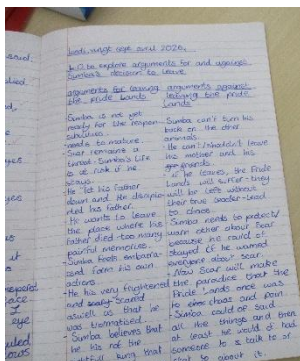 L.O to explore arguments for and against
Simba's decision to leave
arguments for leaving
the pride lands
Simba is not yet
ready for the
- needs to mature.
Scar remains a
threat. Simba's life
is at risk if he
stays.
- He let his father
down and He
his father.
- He wants to leave
the place where his
father died - too many
painful memories.
- Simba feels
and
- He his very frightened
and Scared
aswell as that he
was
- Simba believes that
he his not the
king that
arguments against
leaving the pride
lands
- Simba can't turn his
back on the other
animals.
- He can't/shouldn't leave
his mother and his
- if he leaves, the Pride
Lands will suffer - they
will be left without
their true leader - Lead
to chaos.
- Simba needs to protect/
warn other about Scar
because he could of
stayed if he warned
everyone about scar.
- Now Scar will make
the paradice that the
Pride Lands once was
to chaos and pain.
- Simba could of said
all the things and then
at least he would of had
someone to talk to or
about it.
said
eye